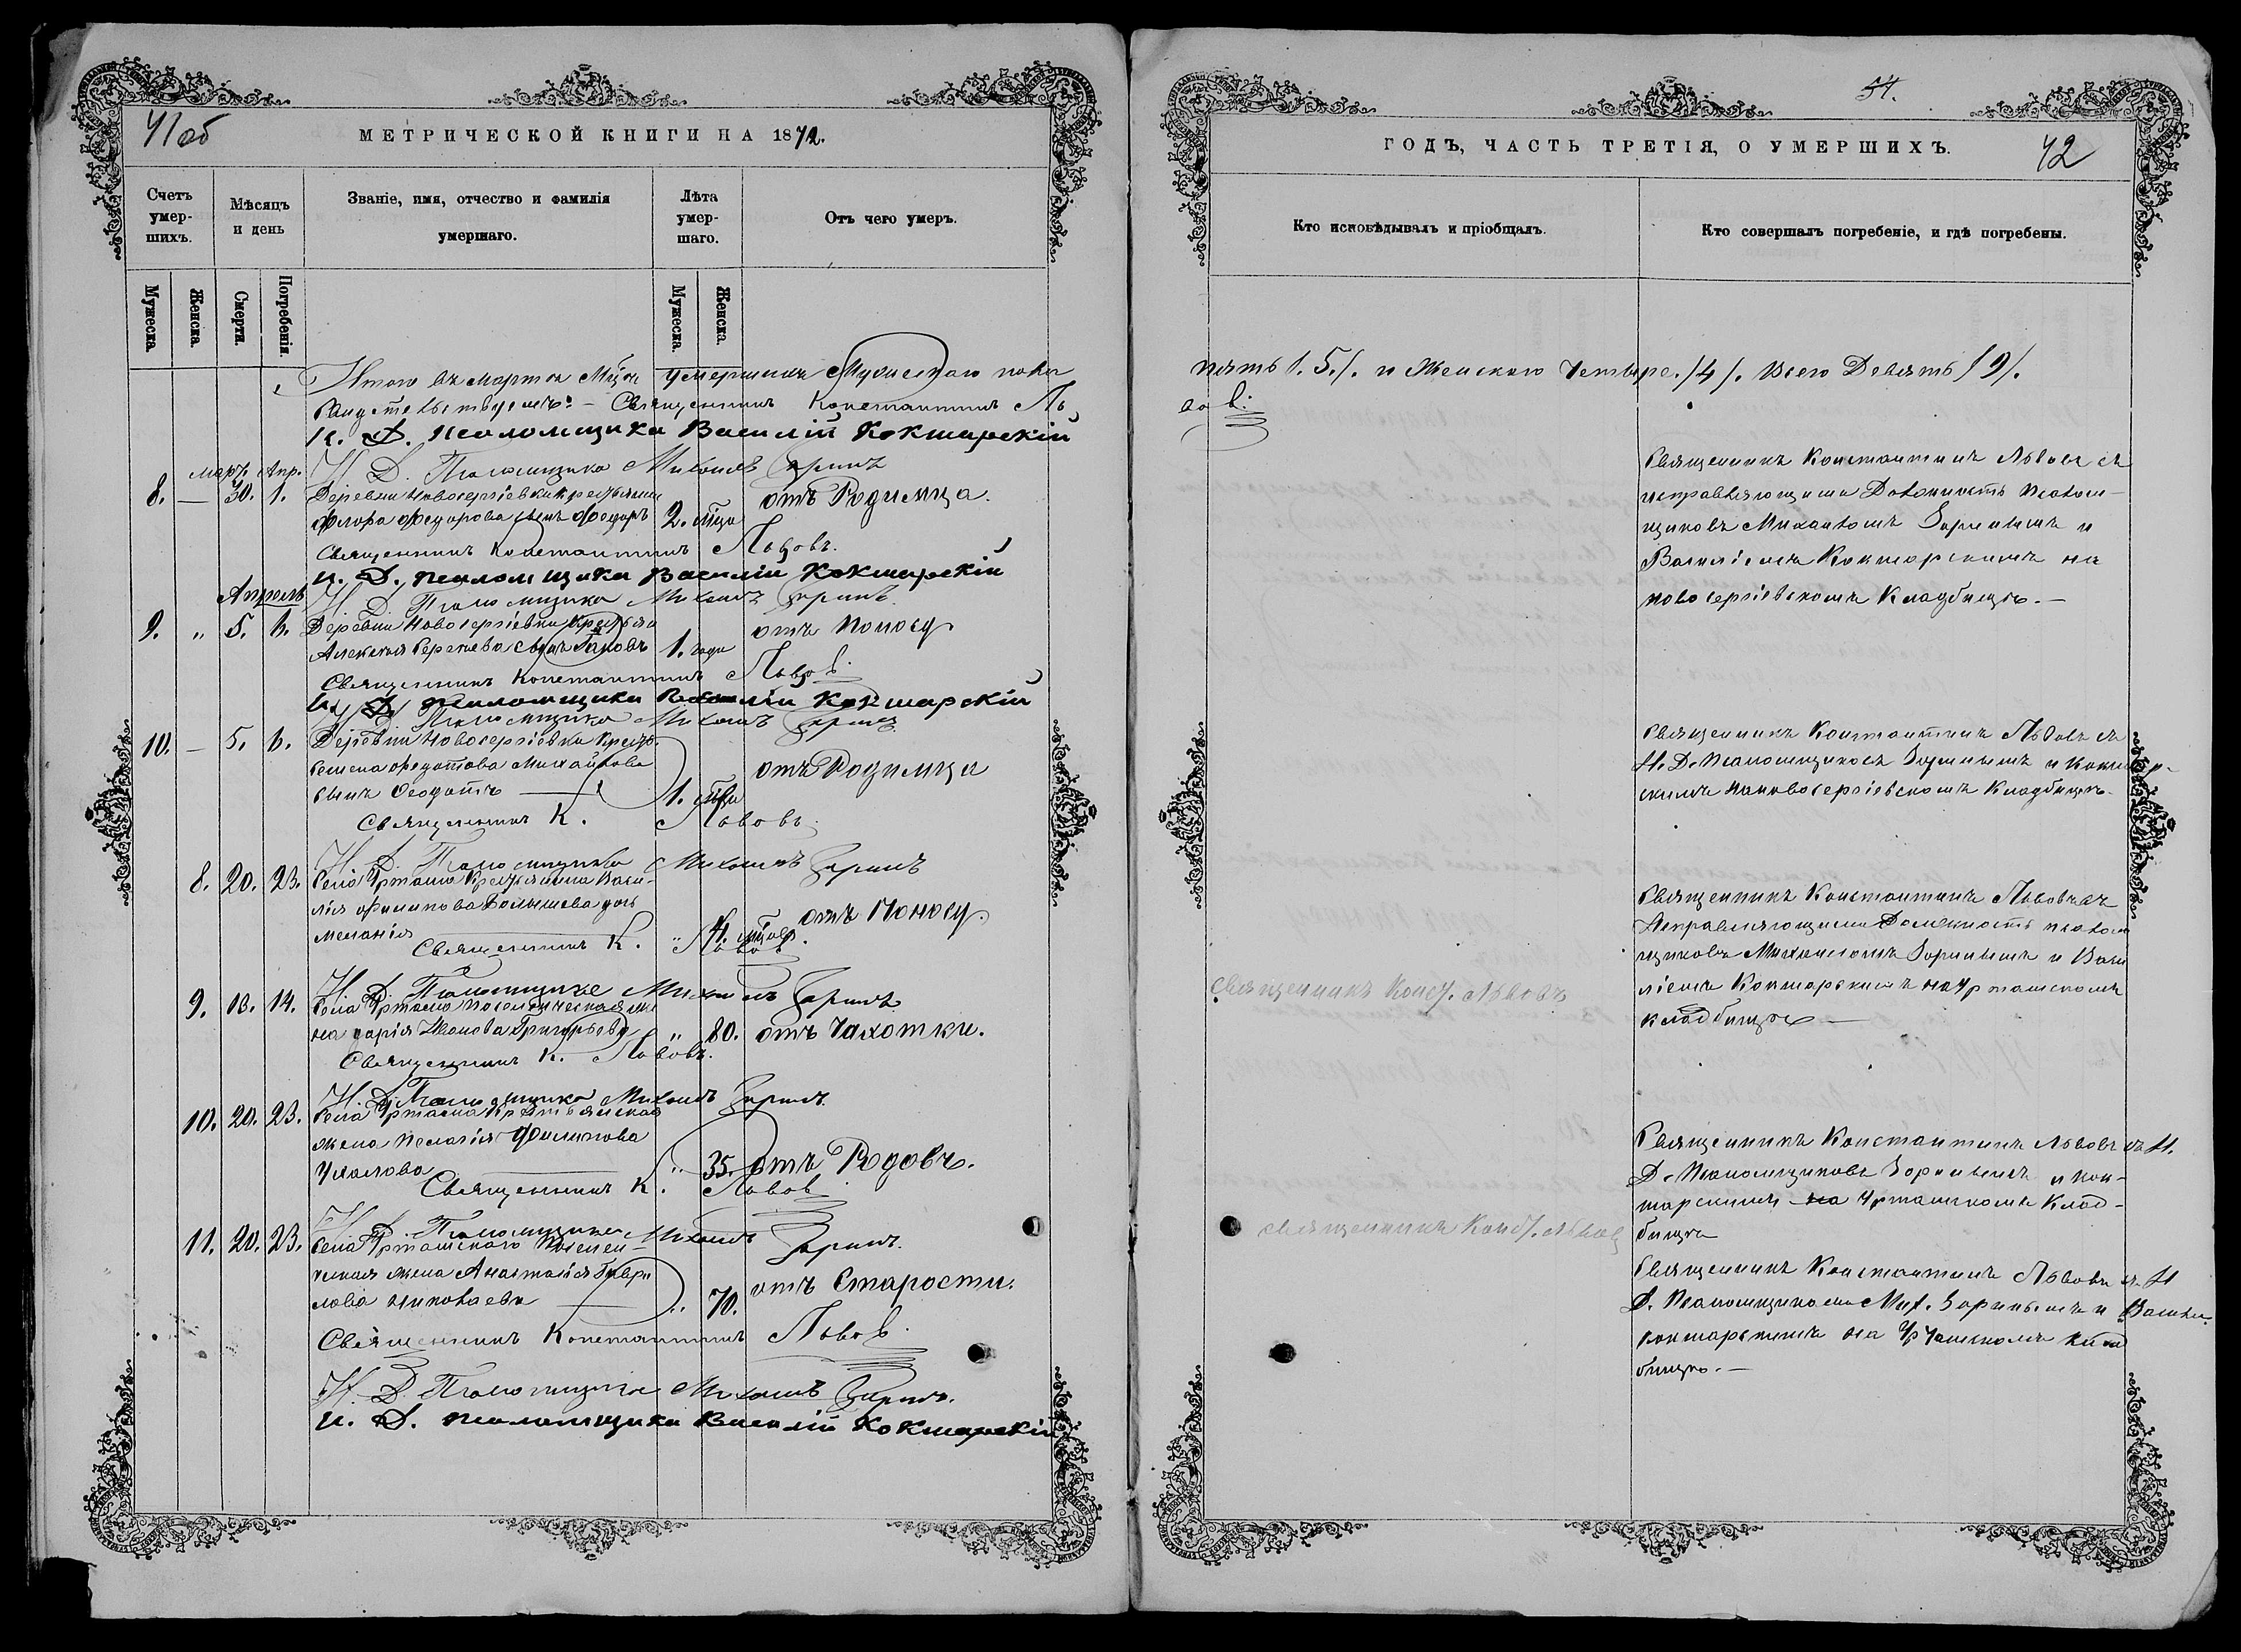 41об
МЕТРИЧЕСКОЙ КНИГИ НА 1872.
Счетъ умер-шихъ.
Мѣсяцъ и день
Званіе, имя, отчество и фамилія умершаго.
Лѣта умер-шаго.
Отъ чего умеръ.
Мужеска.
Женска.
Смерти.
Погребенія.
Мужеска.
Женска.
Итого въ Мартѣ М-цѣ умершихъ Мужескаго пола
Свидетельствуемъ: – Священникъ Константинъ Ль
И. Д. псаломщика Василій Кокшарскій
И. Д. Псаломщика Михаилъ Зоринъ
март. Апр.
8. — 30. 1. Деревни Новосергіевки крестьянина отъ Родимца.
Флора Федорова сынъ Федоръ 2. м-ца
Священникъ Константинъ Львовъ.
И. Д. псаломщика Василій Кокшарскій
Апрель
И. Д. Псаломщика Михаилъ Зоринъ
9. „ 5. 6. Деревни Новосергіевки Крестьян отъ Поносу
Алексея Сергеева сынъ Іаковъ 1. года
Священникъ Константинъ Львов.
И. Д. псаломщика Василій Кокшарскій
И. Д. Псаломщика Михаилъ Зоринъ
10. — 5. 6. Деревни Новосергіевки Крестьян.
Семена Федотова Михайлова отъ Родимца
сынъ Феодотъ — 1. м-ца
Священникъ К. Львовъ.
И. Д. Псаломщика Михаилъ Зоринъ
8. 20. 23. Села Уртама Крестьянина Васи-
лія Филипова дочь
Меланія „ 4. м-цовъ. отъ Поносу.
Священникъ К. Львов
И. Д. Псаломщика Михаилъ Зоринъ
9. 13. 14. Села Уртама Поселенческая же
на Дарія Иванова Григорьева „ 80. отъ Чахотки.
Священникъ К. Львовъ.
И. Д. Псаломщика Михаилъ Зоринъ
10. 20. 23. Села Уртама Крестьянская
жена Пелагія Филипова
„ 35. отъ Родовъ.
Священникъ К. Львов
И. Д. Псаломщика Михаилъ Зоринъ.
11. 20. 23. Села Уртамскаго Поселен-
ческая жена Анастасія Гаври
лова Николаева — „ 70. отъ Старости.
Священникъ Константинъ Львов.
И. Д. Псаломщика Михаилъ Зоринъ.
И. Д. псаломщика Василій Кокшарскій
51.
ГОДЪ, ЧАСТЬ ТРЕТІЯ, О УМЕРШИХЪ.
42
Кто исповѣдывалъ и пріобщалъ.
Кто совершалъ погребеніе, и гдѣ погребены.
пять /. 5./. и Женскаго Четыре. /4/. Всего Девять /9/.
вов.
Священникъ Константинъ Львовъ съ
исправляющими Должность Псалом-
щиковъ Михаиломъ Зоринымъ и
Василіемъ Кокшарскимъ на
новосергіевскомъ Кладбищѣ. —
Священникъ Константинъ Львовъ съ
И. Д. Псаломщиковъ Зоринымъ и Кокшар-
скимъ на новосергіевскомъ Кладбищѣ.
Священникъ Константинъ Львовъ съ
Исправляющими Должность псалом
щиковъ Михаиломъ Зоринымъ и Васи
ліемъ Кокшарскимъ на Уртамскомъ
кладбищѣ —
Священникъ Конст. Львовъ
Священникъ Константинъ Львовъ съ И.
Д. Псаломщиковъ Зоринымъ и Кок-
шарскимъ на Уртамскомъ Клад-
бищѣ
Священникъ Конст. Львовъ
Священникъ Константинъ Львовъ съ И
Д. Псаломщиками Мих. Зоринымъ и Васил.
Кокшарскимъ на Уртамскомъ клад
бищѣ. —